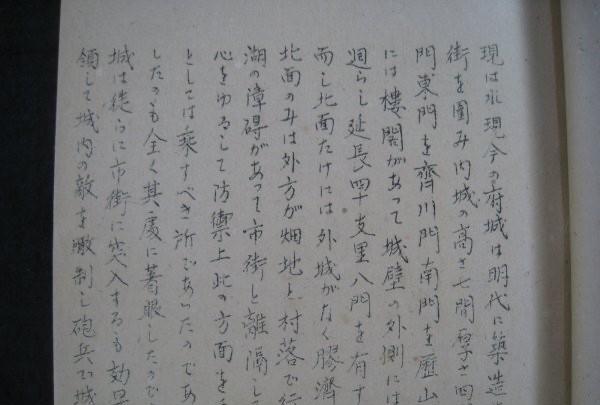 現は水現今の府城は明代に築造
街を圍み内城の高さ七間厚さ四
門東門を齊川門南門を歴山
には樓閣があって城壁の外側には
週らし延長四十支里八門を有す
而し北面たけには外城がなく膠濟
北面のみは外方が畑地と村落で行
湖の障碍があって市街と離隔して
心をゆるして防禦上此の方面を
としては乘すべき所であったのであ
したのも全く其處に著眼したので
城は徒らに市街に突入するも効果
領して城内の敵を瞰制し砲兵で城